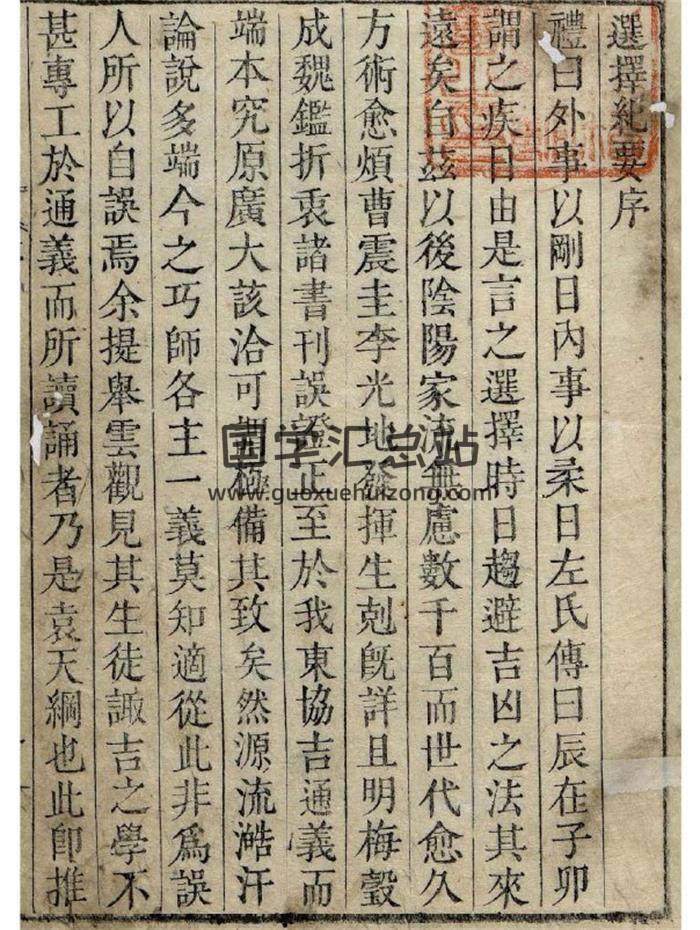 選擇紀要序
禮曰外事以剛日內事以柔日左氏傳曰辰在子卯
謂之疾日由是言之選擇時日趨避吉凶之法其來
遠矣自茲以後陰陽家流無慮數千百而世代愈久
方術愈煩曹震圭李光地發揮生剋旣詳且明梅瑴
成魏鑑折衷諸書刊誤證正至於我東協吉通義而
端本究原廣大該洽可謂極備其致矣然源流澔汗
論說多端今之巧師各主一義莫知適從此非爲誤
人所以自誤焉余提舉雲觀見其生徒諏吉之學不
甚專工於通義而所讀誦者乃是袁天綱也此卽推
国学汇总站
www.guoxuehuizong.com